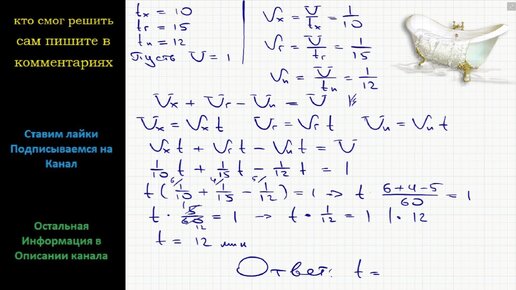 кто смог решить
сам пишите в
комментариях
Ставим лайки
Подписываемся на
Канал
Остальная
Информация в
Описании канала
tх = 10
tг = 15
tн = 12
Пусть U = 1
Vх = U/tх = 1/10
Vг = U/tг = 1/15
Vн = U/tн = 1/12
Uх + Uг − Uн = U
Uх = Vх t Uг = Vг t Uн = Vн t
Vх t + Vг t − Vн t = U
1/10 t + 1/15 t − 1/12 t = 1
t (6/ 1/10 + 4/ 1/15 − 5/ 1/12) = 1 → t · (6+4−5)/60 = 1
t · 5/60 = 1 → t · 1/12 = 1 | · 12
t = 12 мин
Ответ: t =